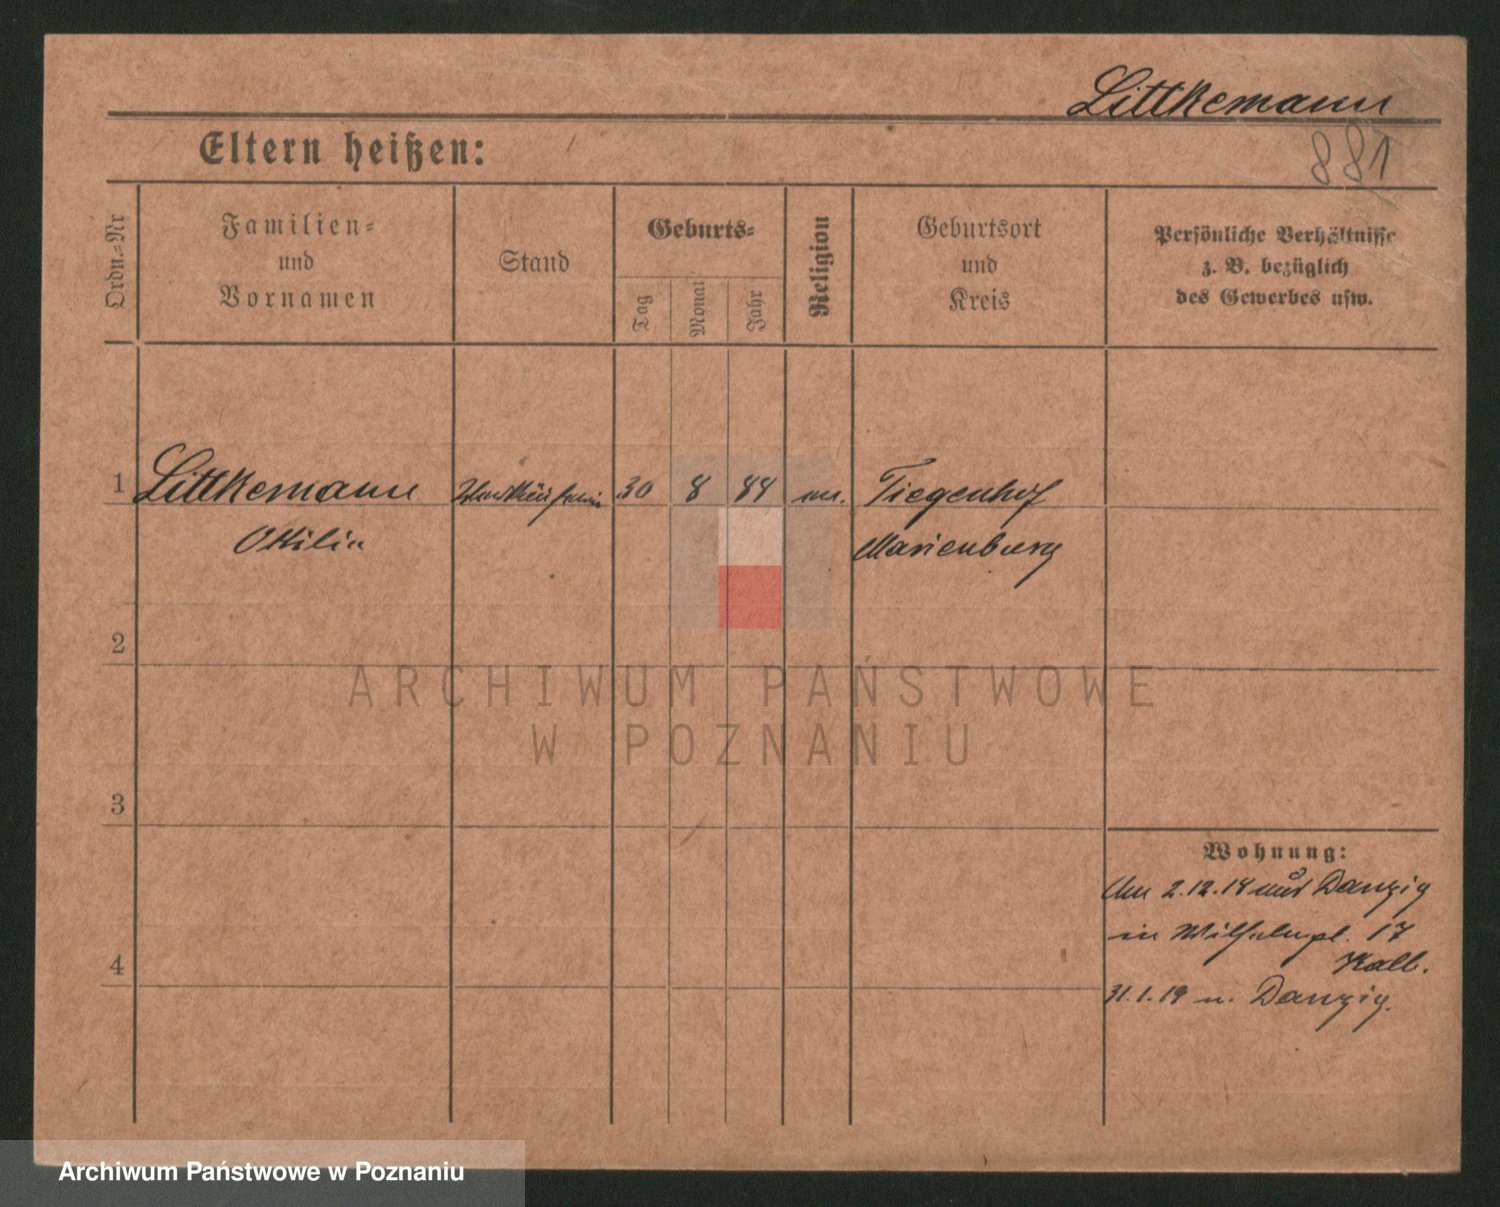 Littkemann
881
Eltern heißen:
Ordn.-Nr
Familien-
und
Vornamen
Stand
Geburts-
Tag
Monat
Jahr
Religion
Geburtsort
und
Kreis
Persönliche Verhältnisse
z. B. bezüglich
des Gewerbes usw.
1
Littkemann
30
8
Tiegenhof
Ottilie
Marienburg
2
ARCHIWUM PAŃSTWOWE
W POZNANIU
3
Wohnung:
2.12.18 aus Danzig
in Wilhelmpl. 17
4
31.1.19 n. Danzig.
Archiwum Państwowe w Poznaniu